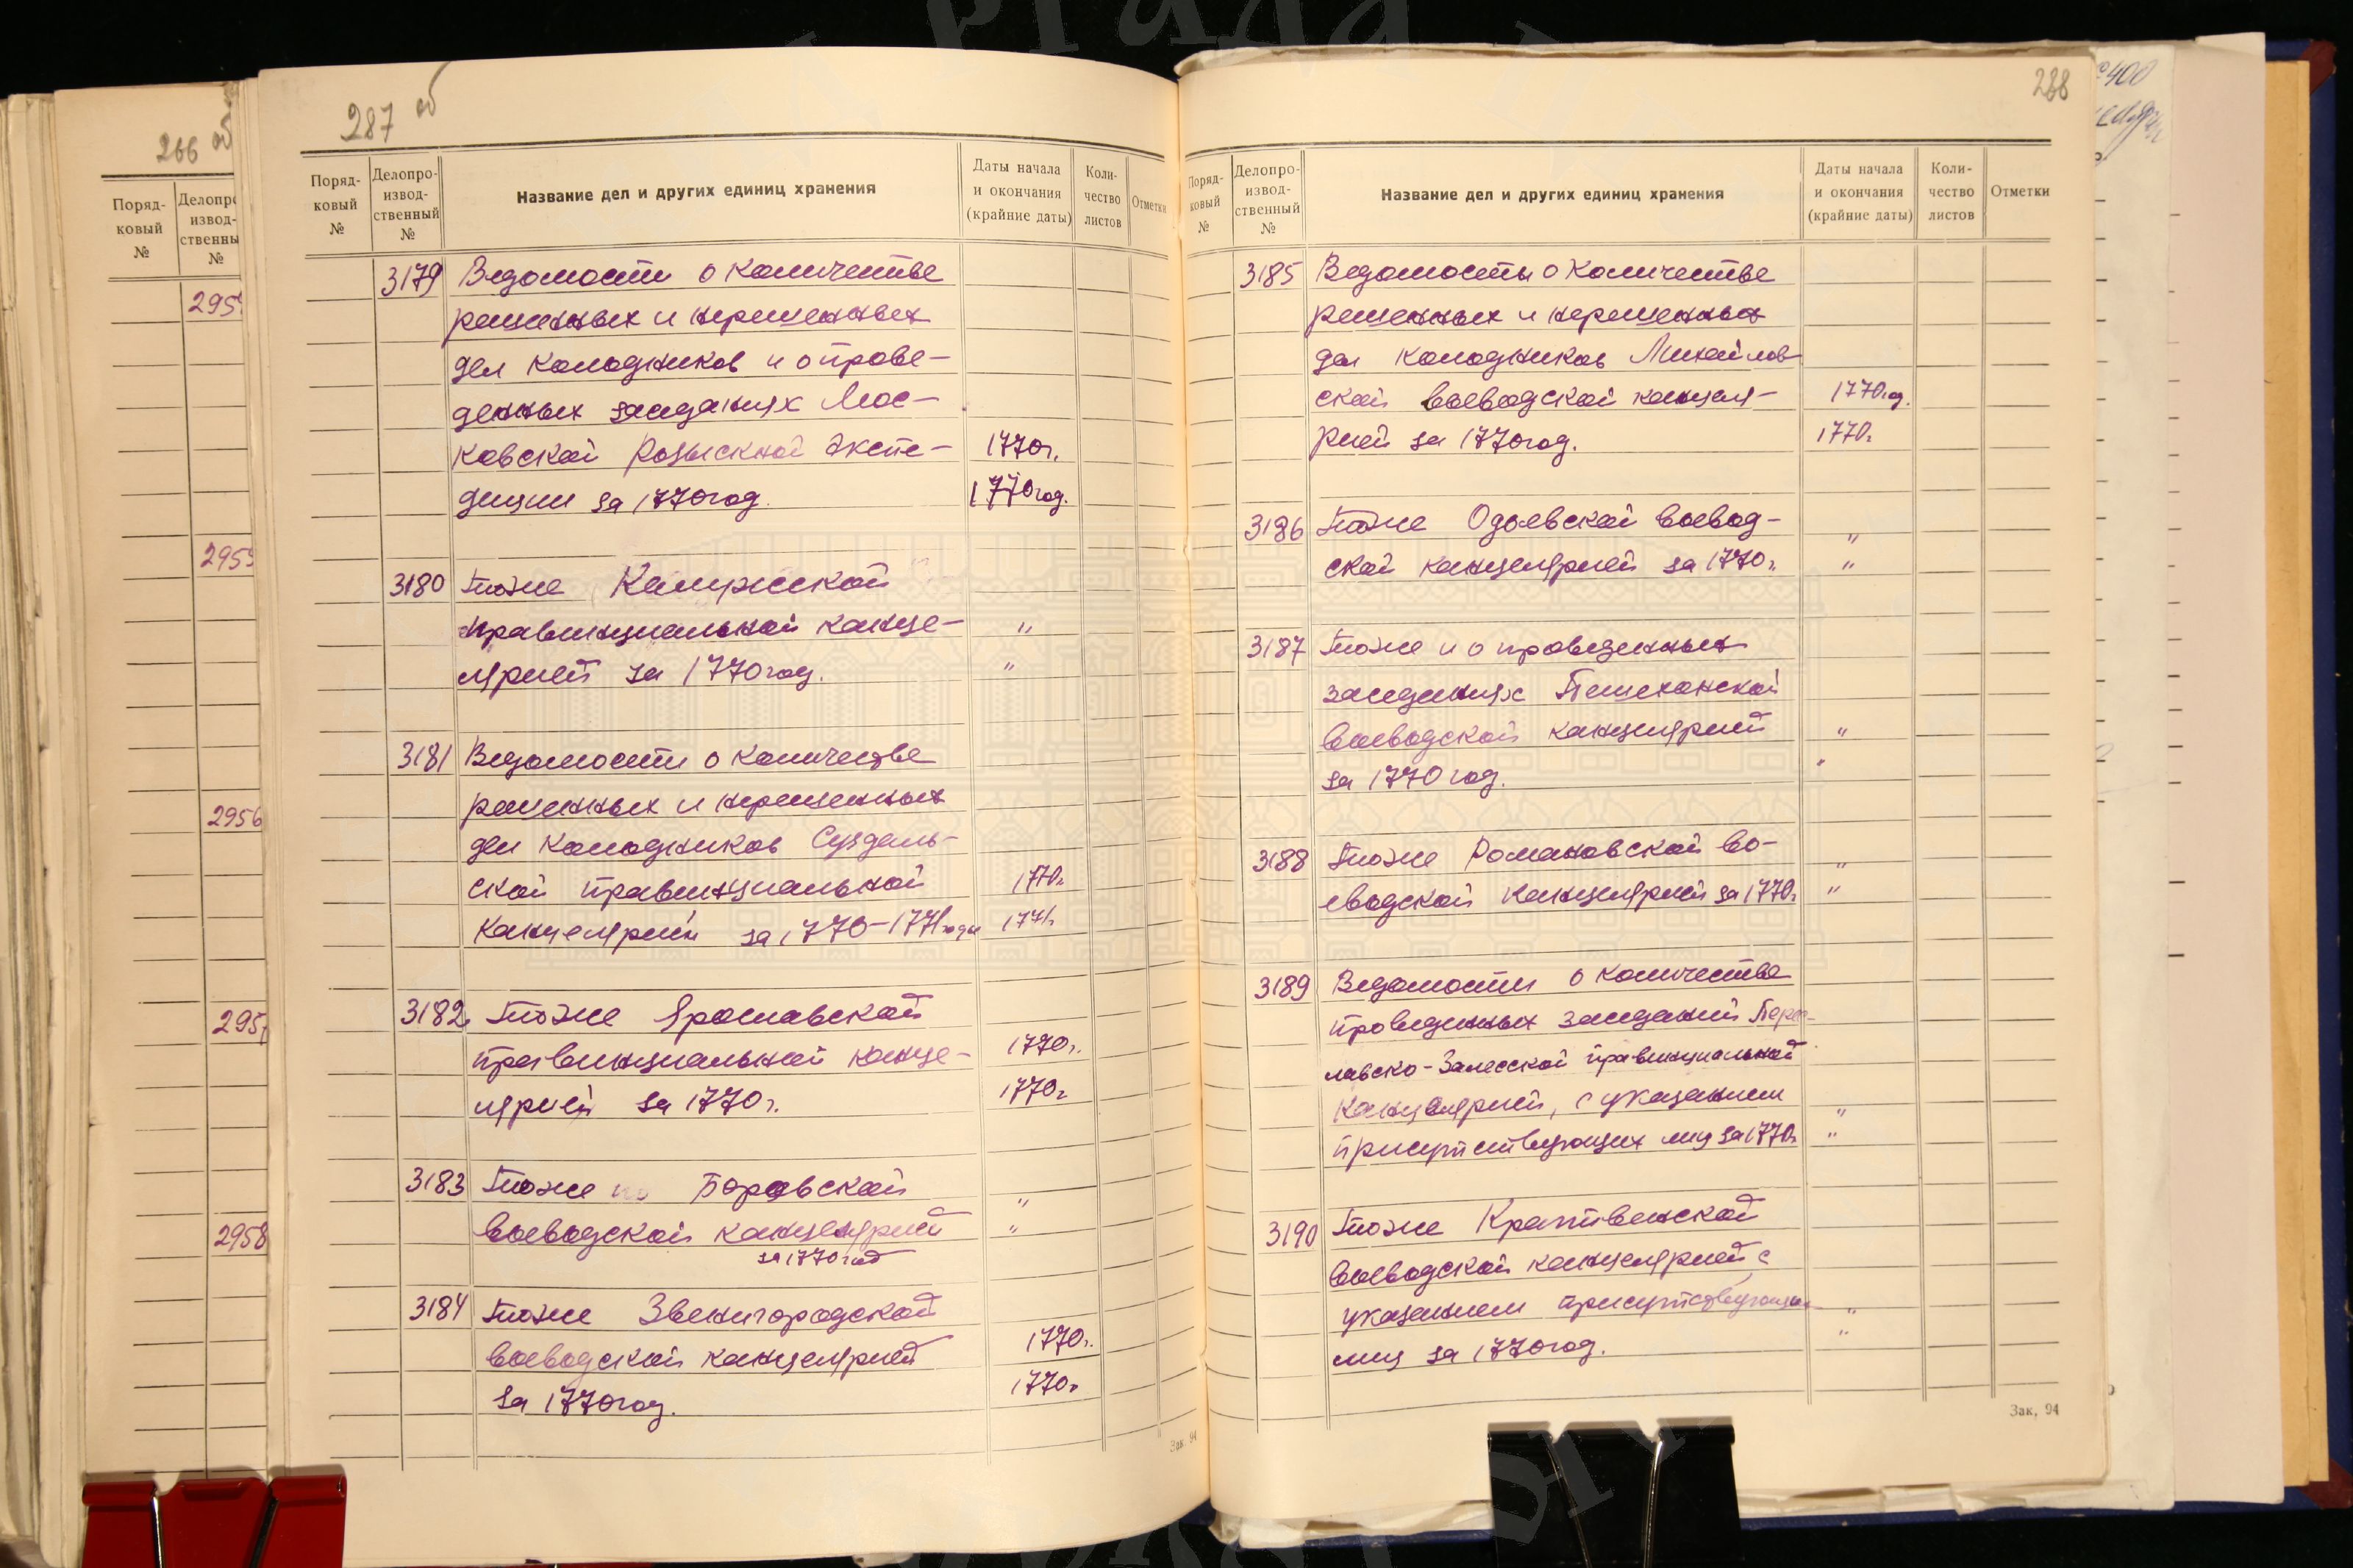 266 об
Поряд-
ковый
№
Делопро
извод-
ственны
№
295
2955
2956
295
2958
287 об
Поряд-
ковый
№
Делопро-
извод-
ственный
№
Название дел и других единиц хранения
Даты начала
и окончания
(крайние даты)
Коли-
чество
листов
Отметки
3179 Ведомости о количестве
решенных и нерешенных
дел колодников и о прове-
денных заседаниях Мос-
ковской Розыскной экспе- 1770г.
диции за 1770 год. 1770 год.
3180 Тоже Калужской
провинциальной канце- "
лярией за 1770 год. "
3181 Ведомости о количестве
решенных и нерешенных
дел колодников Суздаль-
ской провинциальной 1770г.
канцелярией за 1770-1771 годы 1771г.
3182 Тоже Ярославской
провинциальной канце- 1770г.
лярией за 1770г. 1770г.
3183 Тоже по Боровской "
воеводской канцелярией "
за 1770 год
3184 Тоже Звенигородской
воеводской канцелярией 1770г.
за 1770 год. 1770г.
Зак. 94
288
Поряд-
ковый
№
Делопро-
извод-
ственный
№
Название дел и других единиц хранения
Даты начала
и окончания
(крайние даты)
Коли-
чество
листов
Отметки
3185 Ведомости о количестве
решенных и нерешенных
дел колодников Михайлов
ской воеводской канцеля- 1770 год.
рией за 1770 год. 1770г.
3186 Тоже Одоевской воевод- "
ской канцелярией за 1770г. "
3187 Тоже и о проведенных
заседаниях Пешехонской
воеводской канцелярией "
за 1770 год. "
3188 Тоже Романовской во- "
еводской канцелярией за 1770г. "
3189 Ведомости о количестве
проведенных заседаний Перес-
лавско-Залесской провинциальной
канцелярией, с указанием "
присутствующих лиц за 1770г. "
3190 Тоже Крапивенской
воеводской канцелярией с
указанием присутствующих "
лиц за 1770 год. "
Зак. 94
400